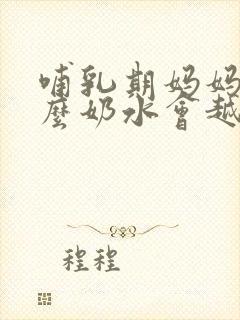 哺乳期妈妈
麽奶水會越
程程